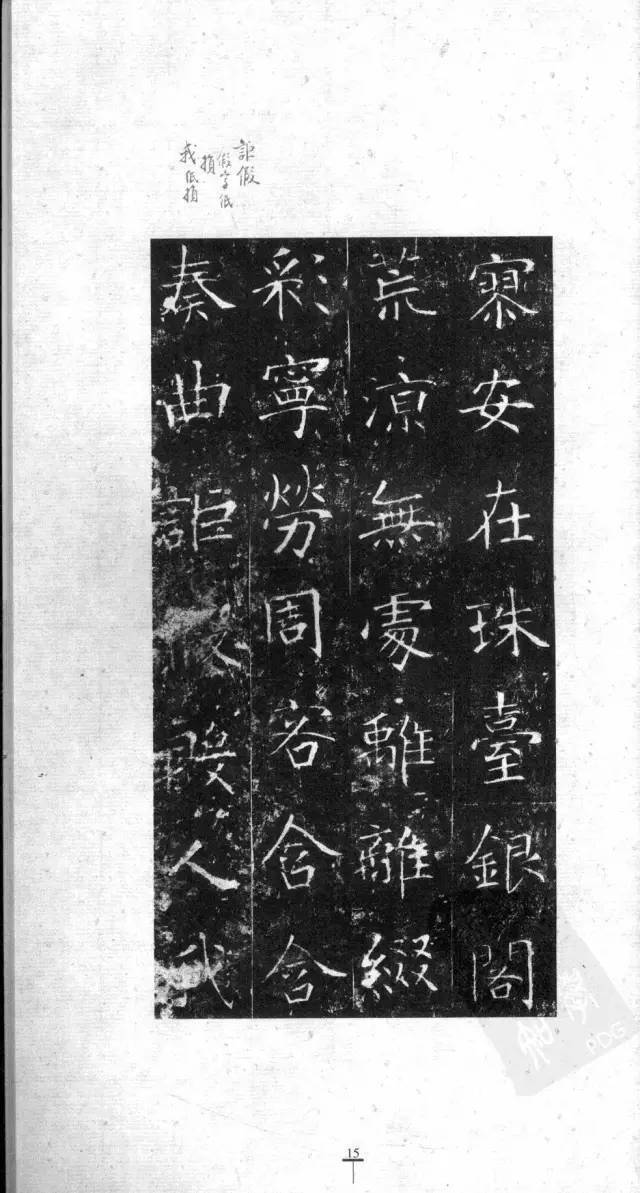 詎假
假字低
損
我低損
寥安在珠臺銀閣
荒涼無處離離綴
彩寧勞周含含
奏曲詎假人我
15
PDG